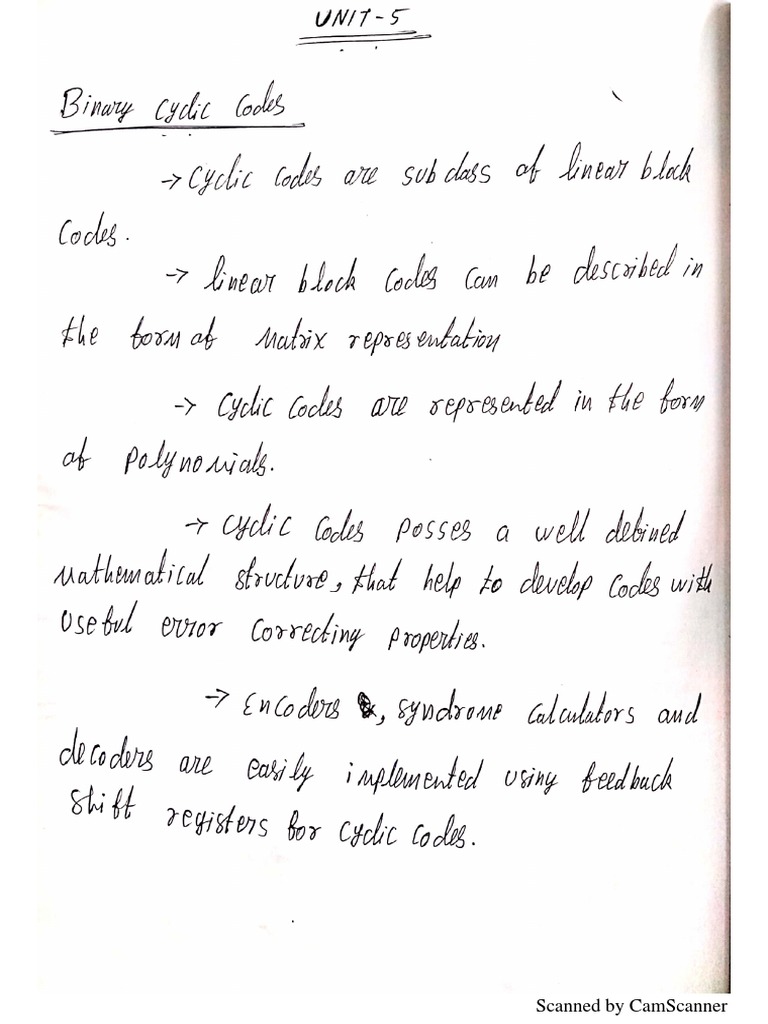 UNIT-5
Binary Cyclic Codes
→ Cyclic Codes are subclass of linear block
Codes.
→ linear block codes can be described in
the form of Matrix representation
→ Cyclic Codes are represented in the form
of Polynomials.
→ Cyclic Codes posses a well defined
Mathematical structure, that help to develop Codes with
useful error Correcting properties.
→ Encoders, syndrome calculators and
decoders are easily implemented using feedback
shift registers for cyclic codes.
Scanned by CamScanner